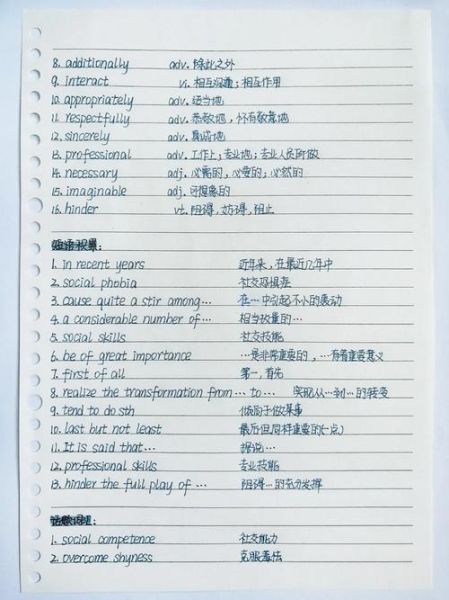 8. additionally adv. 除此之外
9. interact vi. 相互沟通；相互作用
10. appropriately adv. 适当地
11. respectfully adv. 恭敬地，怀有敬意地
12. sincerely adv. 真诚地
13. professional adv. 工作上；专业地；专业人员所做
14. necessary adj. 必需的，必要的；必然的
15. imaginable adj. 可想象的
16. hinder vt. 阻碍，妨碍，阻止
短语积累：
1. in recent years 近年来，在最近几年中
2. social phobia 社交恐惧症
3. cause quite a stir among… 在…中引起不小的轰动
4. a considerable number of… 相当数量的…
5. social skills 社交技能
6. be of great importance …是非常重要的，…有着重要意义
7. first of all 第一，首先
8. realize the transformation from… to… 实现从…到…的转变
9. tend to do sth 倾向于做某事
10. last but not least 最后但同样重要的(一点)
11. It is said that… 据说…
12. professional skills 专业技能
13. hinder the full play of … 阻碍…的充分发挥
1. social competence 社交能力
2. overcome shyness 克服羞怯